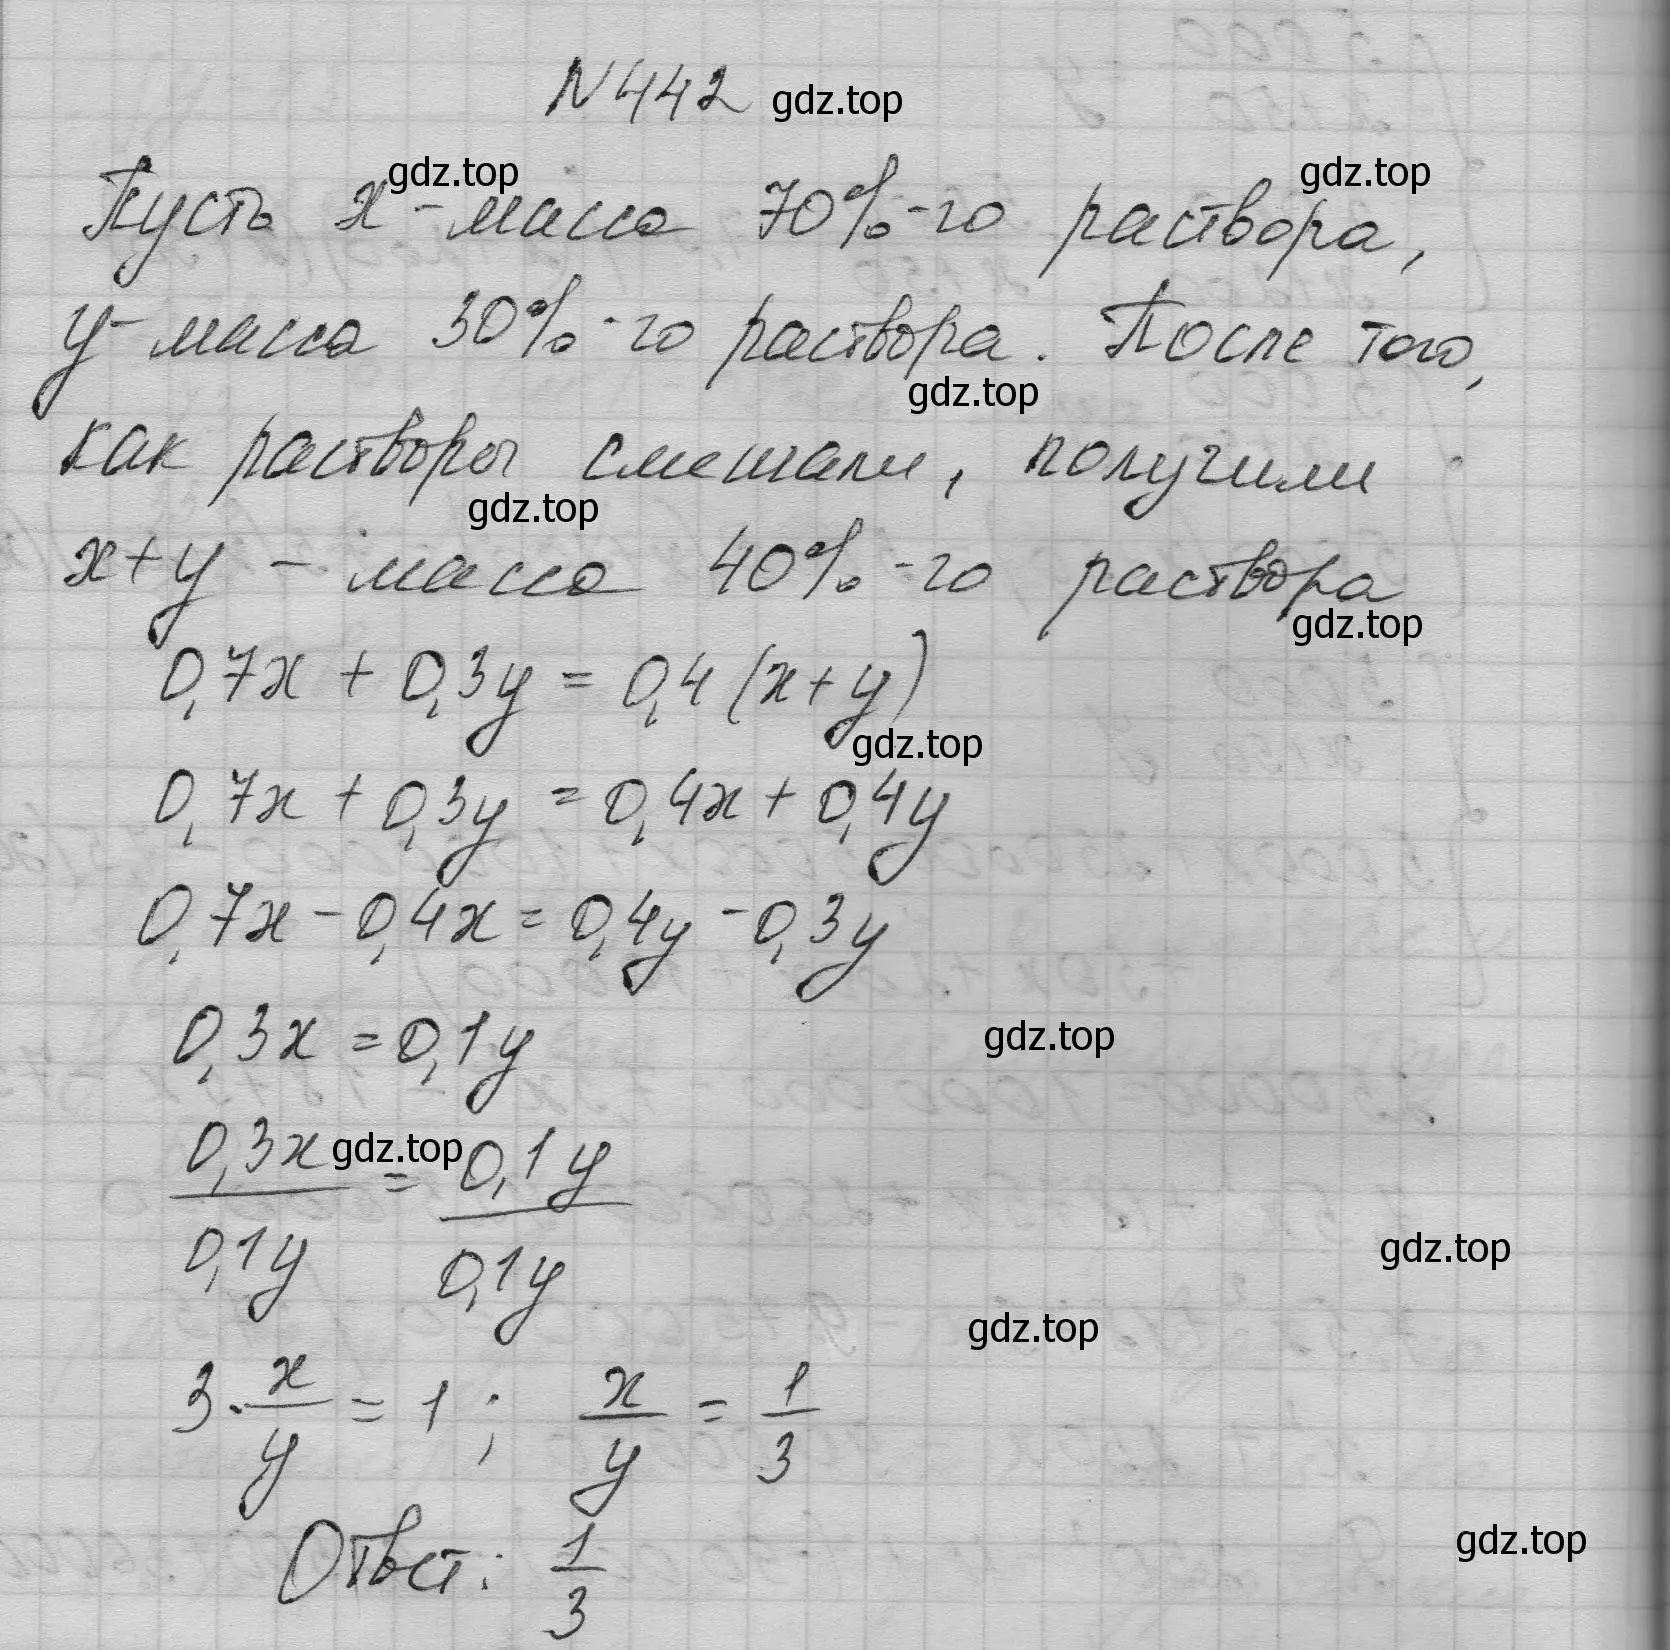 N442 gdz.top
gdz.top gdz.top
Пусть x - масса 70%-го раствора,
y - масса 30%-го раствора. После того,
gdz.top
как растворы смешали, получили
gdz.top
x+y - масса 40%-го раствора
gdz.top
0,7x + 0,3y = 0,4(x+y)
gdz.top
0,7x + 0,3y = 0,4x + 0,4y
0,7x - 0,4x = 0,4y - 0,3y
0,3x = 0,1y gdz.top
0,3x/0,1y = 0,1y/0,1y gdz.top
gdz.top
gdz.top
3·x/y = 1; x/y = 1/3
Ответ: 1/3 gdz.top